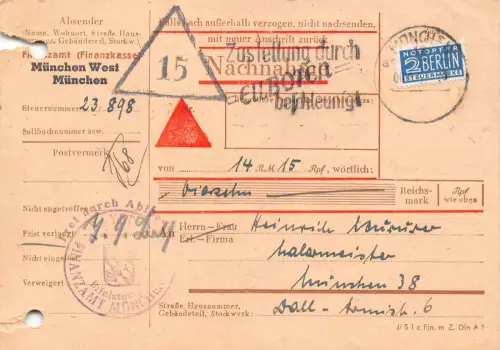 Absender
(Name, Wohnort, Straße Haus-
nummer, Gebäudeteil, Stockw.)
Finanzamt (Finanzkasse)
München West
München
Steuernummer 23.898
Sollbuchnummer usw.
Postvermerk
Nicht angetroffen
Frist verlangt
Nicht eingelöst
Verweigert
Falls nach außerhalb verzogen, nicht nachsenden,
mit neuer Anschrift zurück
Nachnahme
15
Zustellung durch
Eilboten
beschleunigt
MÜNCHEN
NOTOPFER
2 BERLIN
STEUERMARKE
von 14 RM 15 Rpf, wörtlich:
vierzehn
Reichs-
mark
Rpf
wie oben
An
Herrn—Frau
Frl.—Firma
Heinrich
Malermeister
München 38
6
Straße Hausnummer,
Gebäudeteil, Stockwerk:
Frei durch Ablösung
FINANZAMT MÜNCHEN
II 5 1 c Fin. m Z. Din A 6